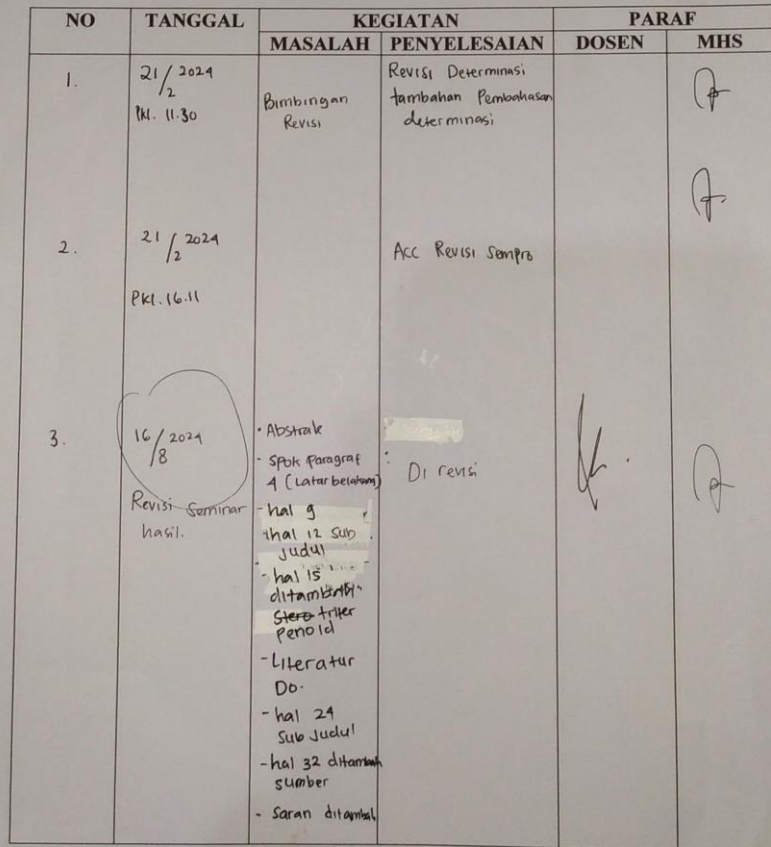 NO TANGGAL KEGIATAN PARAF
MASALAH PENYELESAIAN DOSEN MHS
1.
21/2 2024
Pkl. 11.30
Bimbingan
Revisi
Revisi Determinasi
tambahan Pembahasan
determinasi
2.
21/2 2024
Pkl. 16.11
Acc Revisi Sempro
3.
16/8 2024
Revisi Seminar
hasil.
• Abstrak
- Spok Paragraf
4 (Latar belakang)
- hal 9
hal 12 Sub
judul
- hal 15
ditambah
Stero triter
penoid
- Literatur
Do.
- hal 24
Sub Judul
- hal 32 ditambah
sumber
- Saran ditambah
: Di revisi